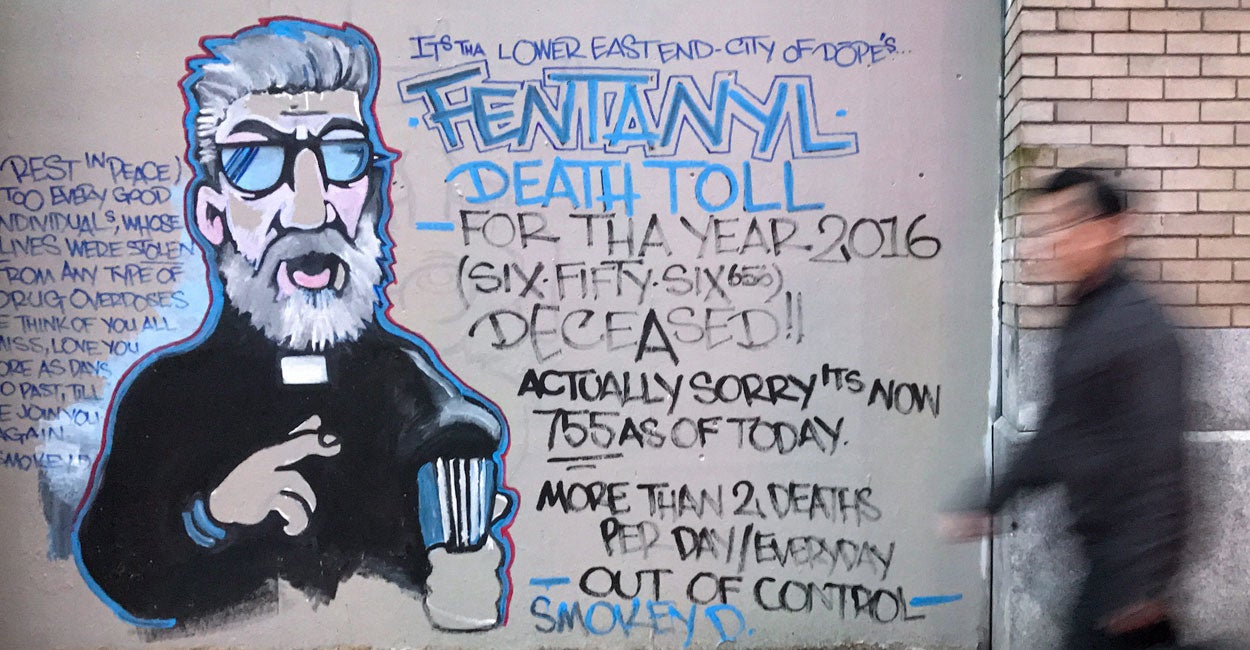 REST IN PEACE)
TOO EVERY GOOD
NDIVIDUALS, WHOSE
LIVES WERE STOLEN
FROM ANY TYPE OF
DRUG OVERDOSES
E THINK OF YOU ALL
MISS, LOVE YOU
ORE AS DAYS
O PAST, TILL
E JOIN YOU
AGAIN
SMOKEY D.
ITS THA LOWER EAST END-CITY OF DOPE'S...
FENTANYL
DEATH TOLL
FOR THA YEAR 2016
(SIX-FIFTY-SIX 656)
DECEASED!!
ACTUALLY SORRY IT'S NOW
755 AS OF TODAY.
MORE THAN 2. DEATHS
PER DAY//EVERYDAY
- OUT OF CONTROL -
SMOKEY D.